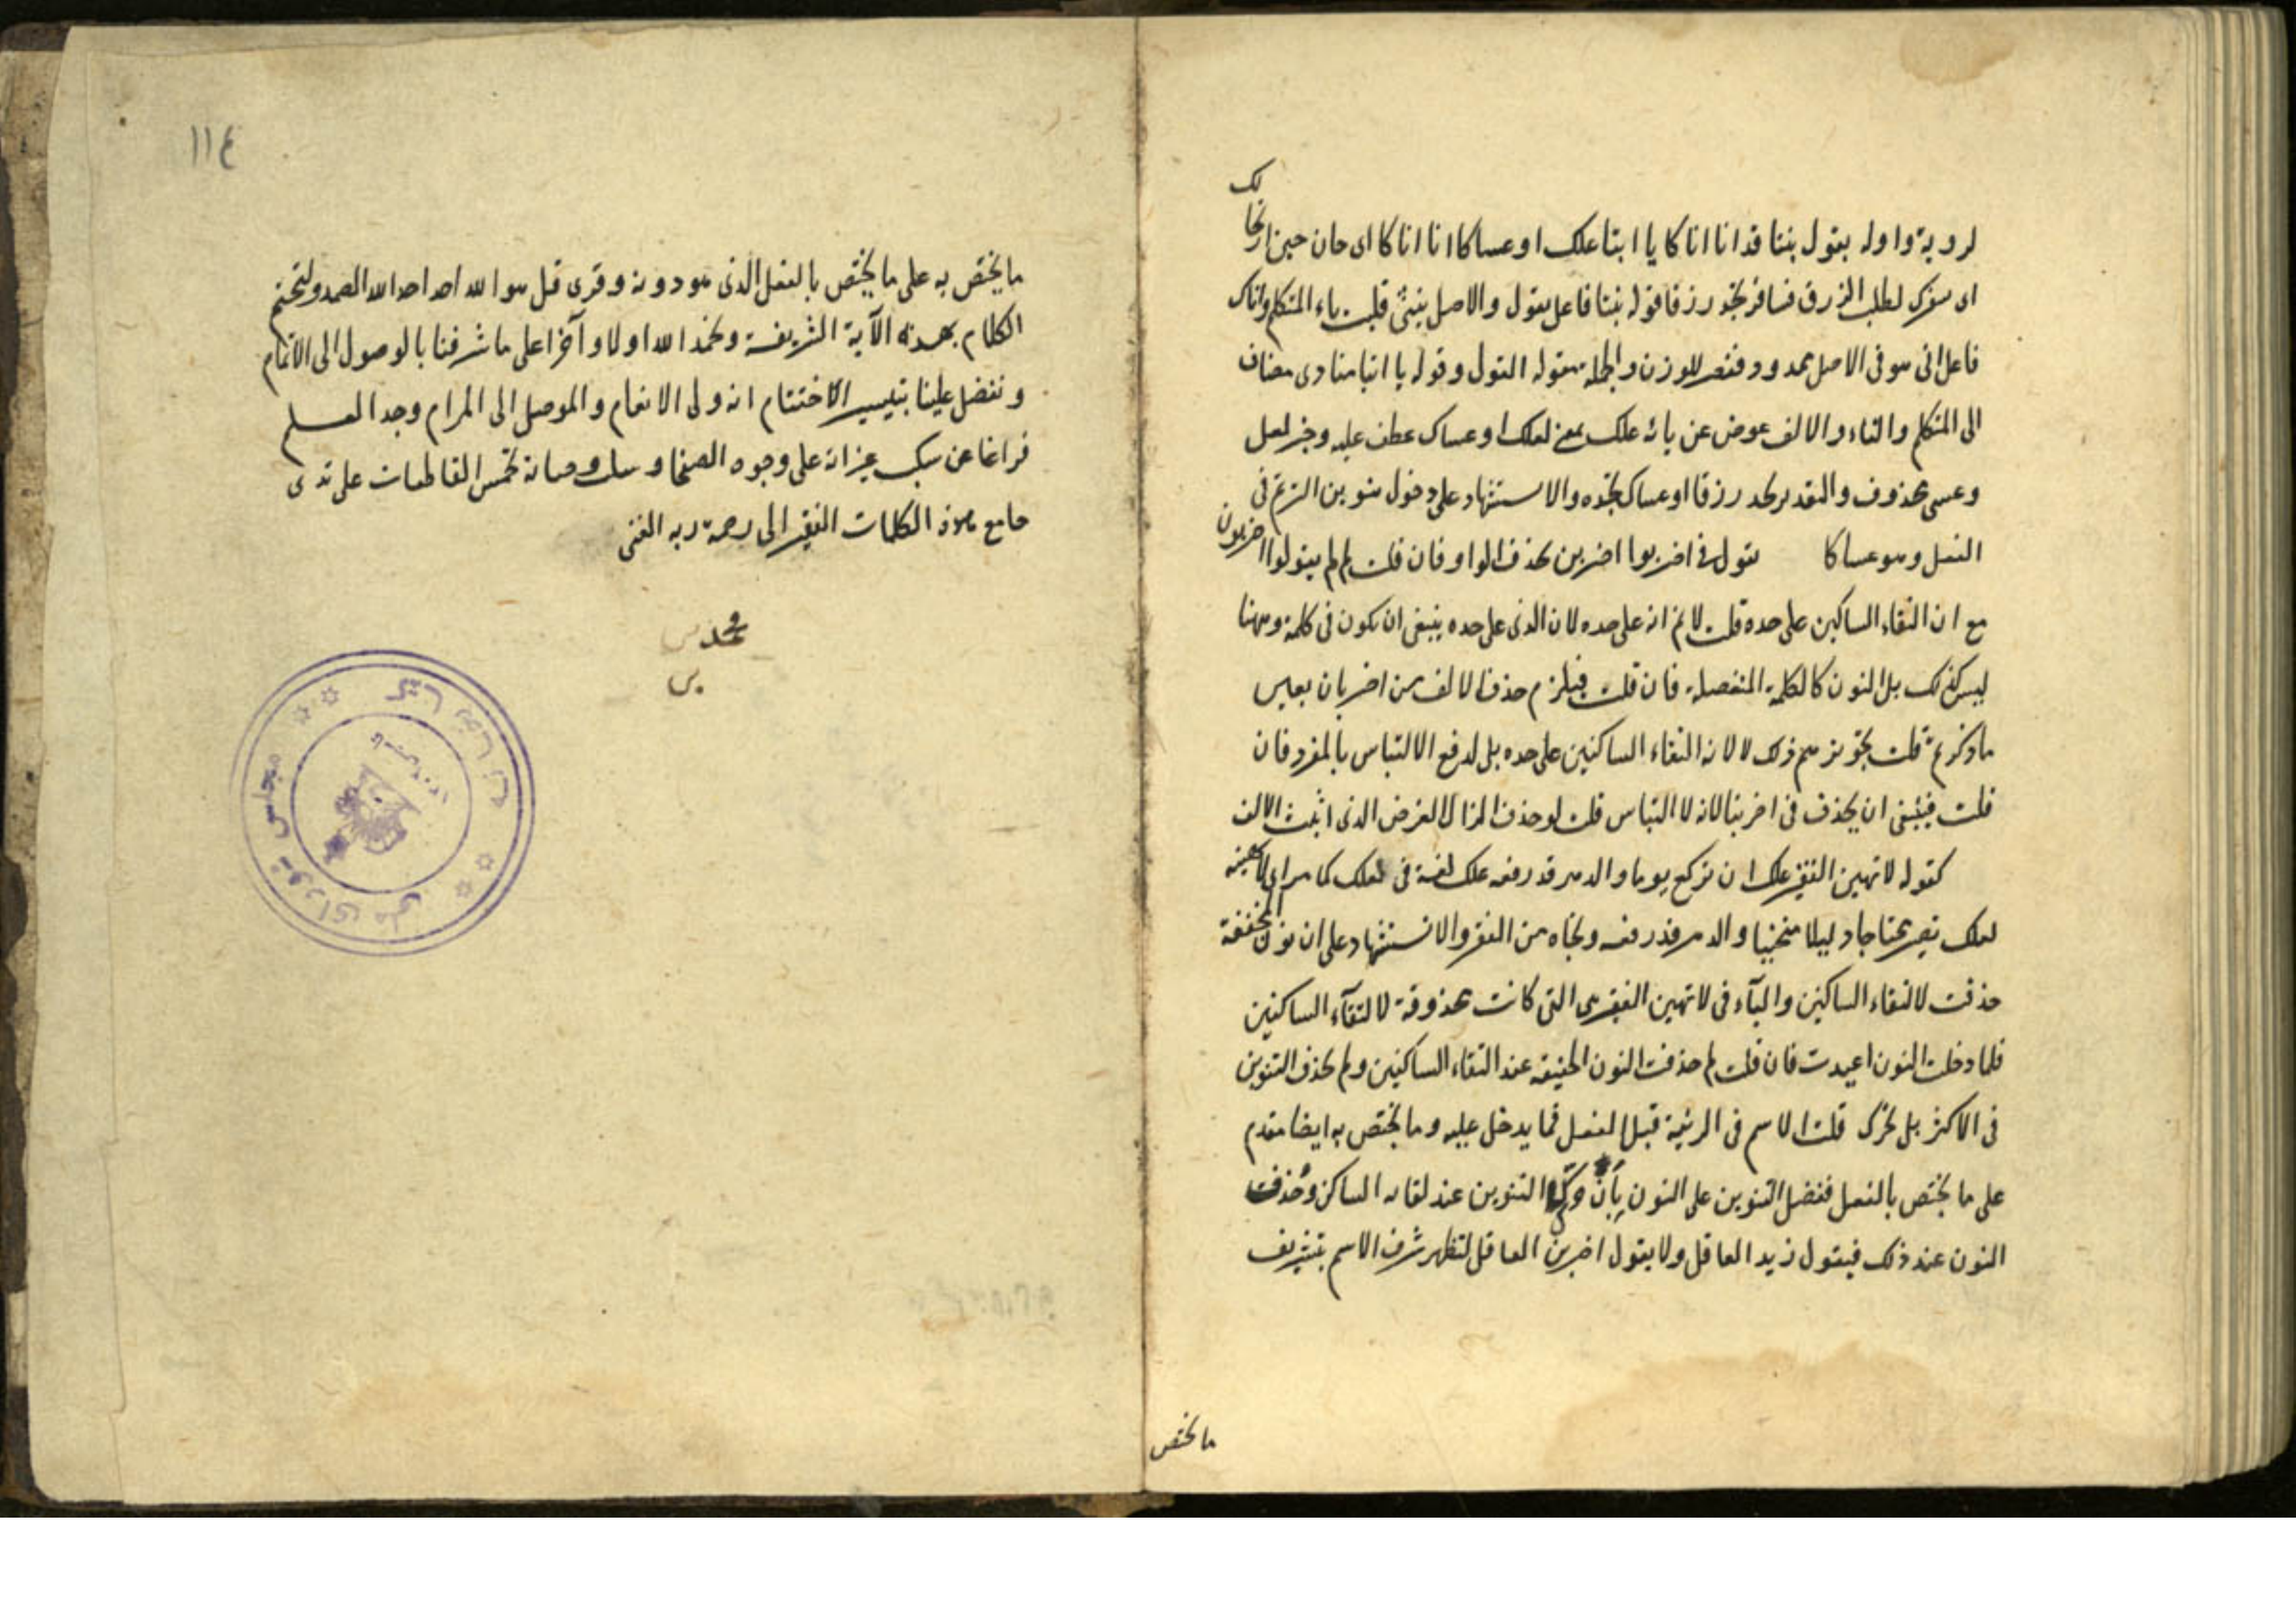 لروبة واوله يقول بنتا قد انا اناكا يا ابتا علك او عساكا انا اناكا اى حان حين ارتحالك
اى سفرك لطلب الرزق فسافر تجد رزقا قوله بنتا فاعل يقول والاصل بنتى قلبت ياء المتكلم واناك
فاعل انى هو فى الاصل ممدود فقصر للوزن والجملة مقوله القول وقوله يا ابتا منادى مضاف
الى المتكلم والتاء والالف عوض عن يائه علك بمعنى لعلك او عساك عطف عليه وخبر لعل
وعسى محذوف والتقدير تجد رزقا او عساك تجده والاستشهاد على دخول تنوين الترنم فى
الفعل وهو عساكا يقول فى اضربوا اضربن بحذف الواو فان قلت لم لم يقولوا اضربون
مع ان التقاء الساكنين على حده قلت لا نم انه على حده لان الذى على حده ينبغى ان يكون فى كلمة وههنا
ليس كذلك بل النون كالكلمة المنفصلة فان قلت فيلزم حذف الالف من اضربان بعين
ما ذكرتم قلت تجويزهم ذلك لا لانه التقاء الساكنين على حده بل لدفع الالتباس بالمفرد فان
قلت فينبغى ان يحذف فى اضربنا لانه لا التباس قلت لو حذف لزال الغرض الذى اثبت الالف
كقوله لا تهين الفقير علك ان تركع يوما والدهر قد رفعه علك لغة فى لعلك كما مر اى لا تهينه
لعلك تصير محتاجا ذليلا منحنيا والدهر قد رفعه ونجاه من الفقر والاستشهاد على ان نون المخففة
حذفت لالتقاء الساكنين والياء فى لا تهين الفقير هى التى كانت محذوفة لالتقاء الساكنين
فلما دخلت النون اعيدت فان قلت لم حذفت النون الخفيفة عند التقاء الساكنين ولم يحذف التنوين
فى الاكثر بل تحرك قلت الاسم فى الرتبة قبل الفعل فما يدخل عليه وما يختص به ايضا مقدم
على ما يختص بالفعل ففضل التنوين على النون بأن حرك التنوين عند لقائه الساكن وحذفت
النون عند ذلك فيقول زيد العاقل ولا يقول اضربن العاقل لتظهر شرف الاسم بتشريف
ما يختص
١١٤
ما يختص به على ما يختص بالفعل الذى هو دونه وقرى قل هو الله احد احد الله الصمد ولنختم
الكلام بهذه الآية الشريفة ونحمد الله اولا وآخرا على ما شرفنا بالوصول الى الاتمام
وتفضل علينا بتيسير الاختتام انه ولى الانعام والموصل الى المرام وجد القلم
فراغا عن سكب عبراته على وجوه الصفحات وسل وصاته لخمس القاطعات على يدى
جامع هذه الكلمات الفقير الى رحمة ربه الغنى
محمد
مجلس شوراى ملى